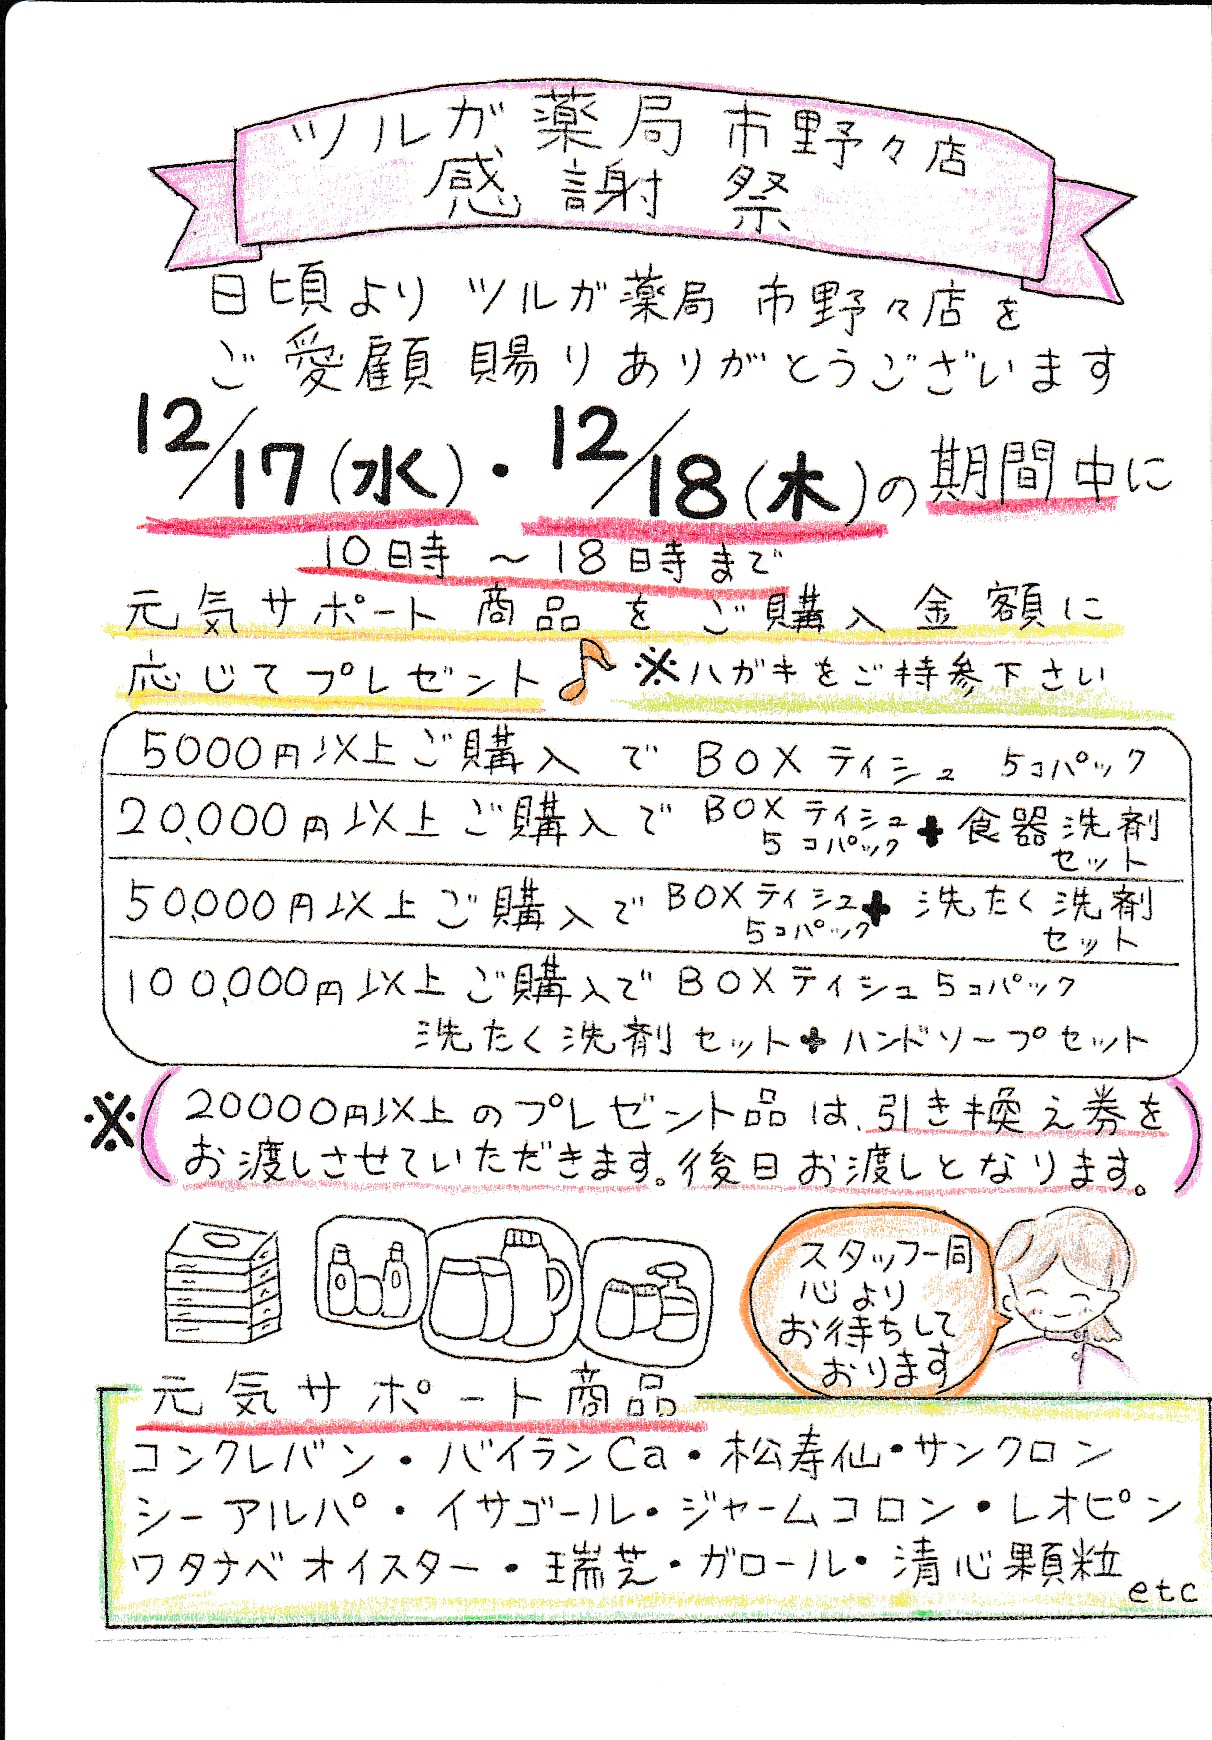 ツルガ薬局 市野々店
感謝祭
日頃より ツルガ薬局 市野々店を
ご愛顧 賜りありがとうございます
12/17(水)・12/18(木)の期間中に
10時～18時まで
元気サポート商品をご購入金額に
応じてプレゼント♪ ※ハガキをご持参下さい
5000円以上ご購入で BOXティシュ 5コパック
20,000円以上ご購入で BOXティシュ 5コパック + 食器洗剤セット
50,000円以上ご購入で BOXティシュ 5コパック + 洗たく洗剤セット
100,000円以上ご購入で BOXティシュ5コパック
洗たく洗剤セット+ハンドソープセット
※(20000円以上のプレゼント品は、引き換え券を
お渡しさせていただきます。後日お渡しとなります。)
スタッフ一同
心より
お待ちして
おります
元気サポート商品
コンクレバン・バイランCa・松寿仙・サンクロン
シーアルパ・イサゴール・ジャームコロン・レオピン
ワタナベオイスター・瑞芝・ガロール・清心顆粒
etc